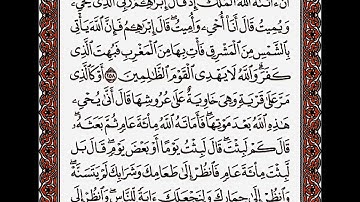 أَنْ ءَاتَىٰهُ ٱللَّهُ ٱلْمُلْكَ إِذْ قَالَ إِبْرَٰهِـۧمُ رَبِّيَ ٱلَّذِى يُحْىِۦ
وَيُمِيتُ قَالَ أَنَا۠ أُحْىِۦ وَأُمِيتُ ۖ قَالَ إِبْرَٰهِـۧمُ فَإِنَّ ٱللَّهَ يَأْتِى
بِٱلشَّمْسِ مِنَ ٱلْمَشْرِقِ فَأْتِ بِهَا مِنَ ٱلْمَغْرِبِ فَبُهِتَ ٱلَّذِى
كَفَرَ ۗ وَٱللَّهُ لَا يَهْدِى ٱلْقَوْمَ ٱلظَّٰلِمِينَ ٢٥٨ أَوْ كَٱلَّذِى
مَرَّ عَلَىٰ قَرْيَةٍ وَهِىَ خَاوِيَةٌ عَلَىٰ عُرُوشِهَا قَالَ أَنَّىٰ يُحْىِۦ
هَٰذِهِ ٱللَّهُ بَعْدَ مَوْتِهَا ۖ فَأَمَاتَهُ ٱللَّهُ مِا۟ئَةَ عَامٍ ثُمَّ بَعَثَهُۥ ۖ
قَالَ كَمْ لَبِثْتَ ۖ قَالَ لَبِثْتُ يَوْمًا أَوْ بَعْضَ يَوْمٍ ۖ قَالَ بَل
لَّبِثْتَ مِا۟ئَةَ عَامٍ فَٱنظُرْ إِلَىٰ طَعَامِكَ وَشَرَابِكَ لَمْ يَتَسَنَّهْ ۖ
وَٱنظُرْ إِلَىٰ حِمَارِكَ وَلِنَجْعَلَكَ ءَايَةً لِّلنَّاسِ ۖ وَٱنظُرْ إِلَى